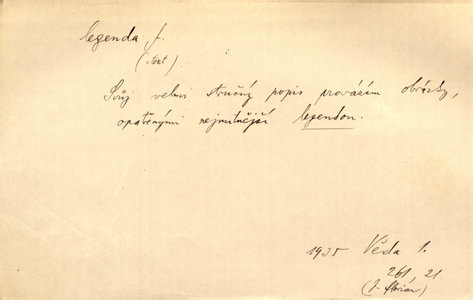 legenda, f.
(=text)
Svůj velmi stručný popis provázím obrázky,
opatřenými nejnutnější legendou.
1935 Věda 1.
261, 21.
(J. Florián)